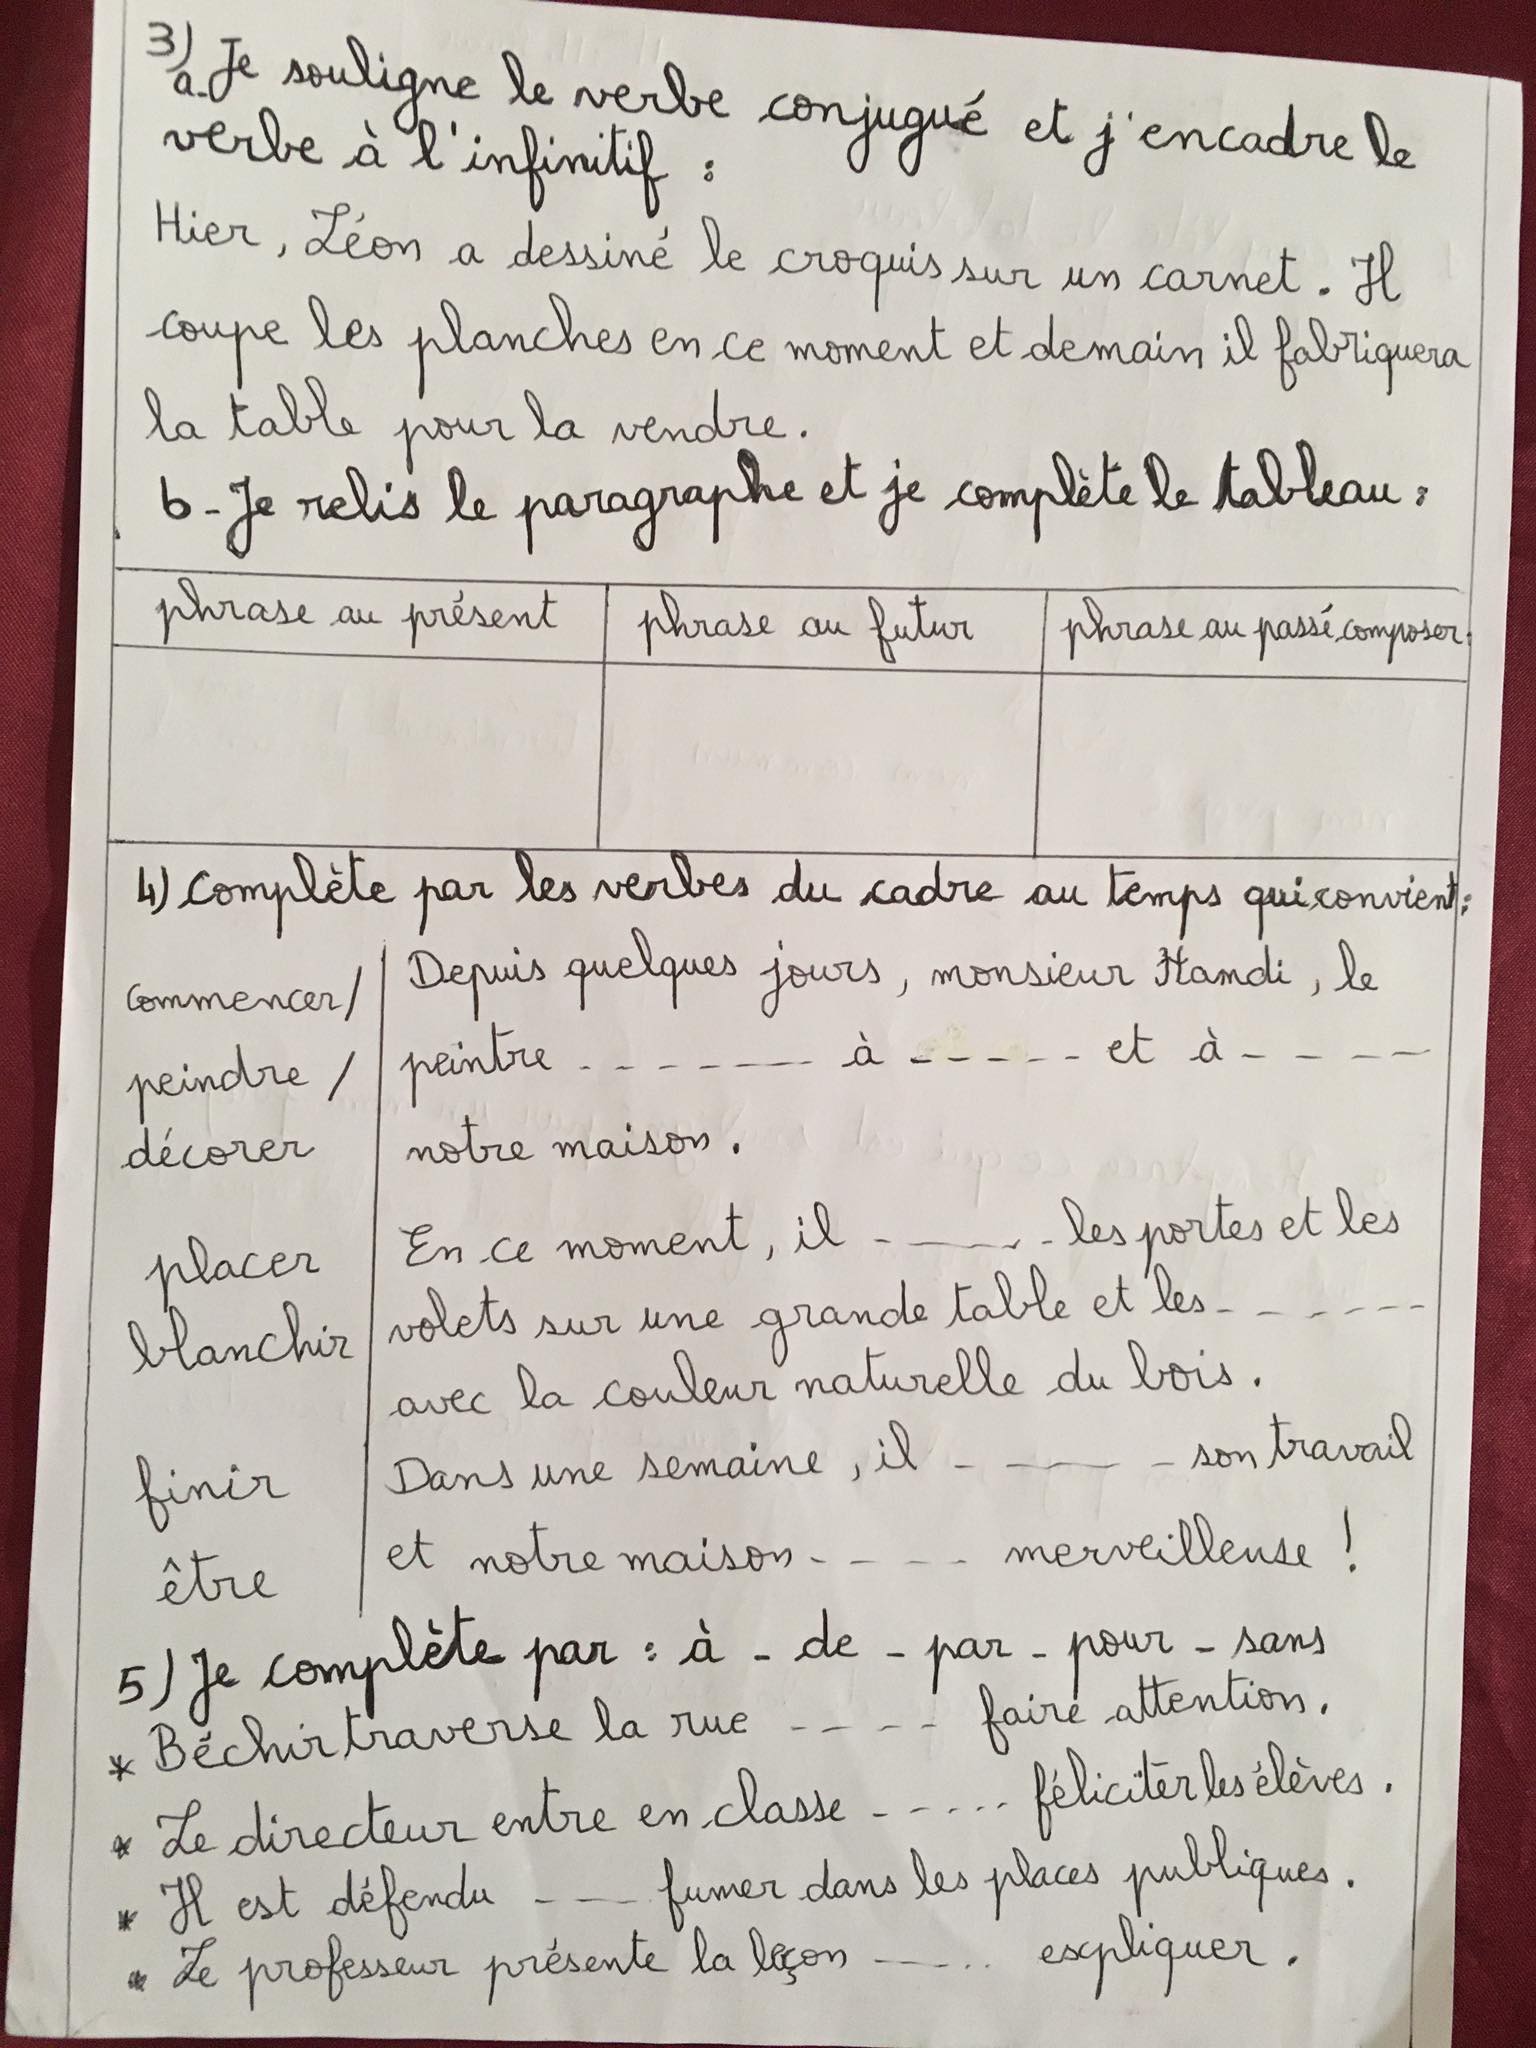 3)
a- Je souligne le verbe conjugué et j'encadre le
verbe à l'infinitif :
Hier, Léon a dessiné le croquis sur un carnet. Il
coupe les planches en ce moment et demain il fabriquera
la table pour la vendre.
b- Je relis le paragraphe et je complète le tableau :
phrase au présent phrase au futur phrase au passé composer.
4) Complète par les verbes du cadre au temps qui convient :
commencer/
peindre /
décorer
placer
blanchir
finir
être
Depuis quelques jours, monsieur Hamdi, le
peintre - - - - - - - à - - - - - et à - - - -
notre maison.
En ce moment, il - - - - - les portes et les
volets sur une grande table et les - - - - - -
avec la couleur naturelle du bois.
Dans une semaine, il - - - - son travail
et notre maison - - - - merveilleuse !
5) Je complète par : à - de - par - pour - sans
* Béchir traverse la rue - - - - faire attention.
* Le directeur entre en classe - - - - - féliciter les élèves.
* Il est défendu - - - fumer dans les places publiques.
* Le professeur présente la leçon - - - - - expliquer.